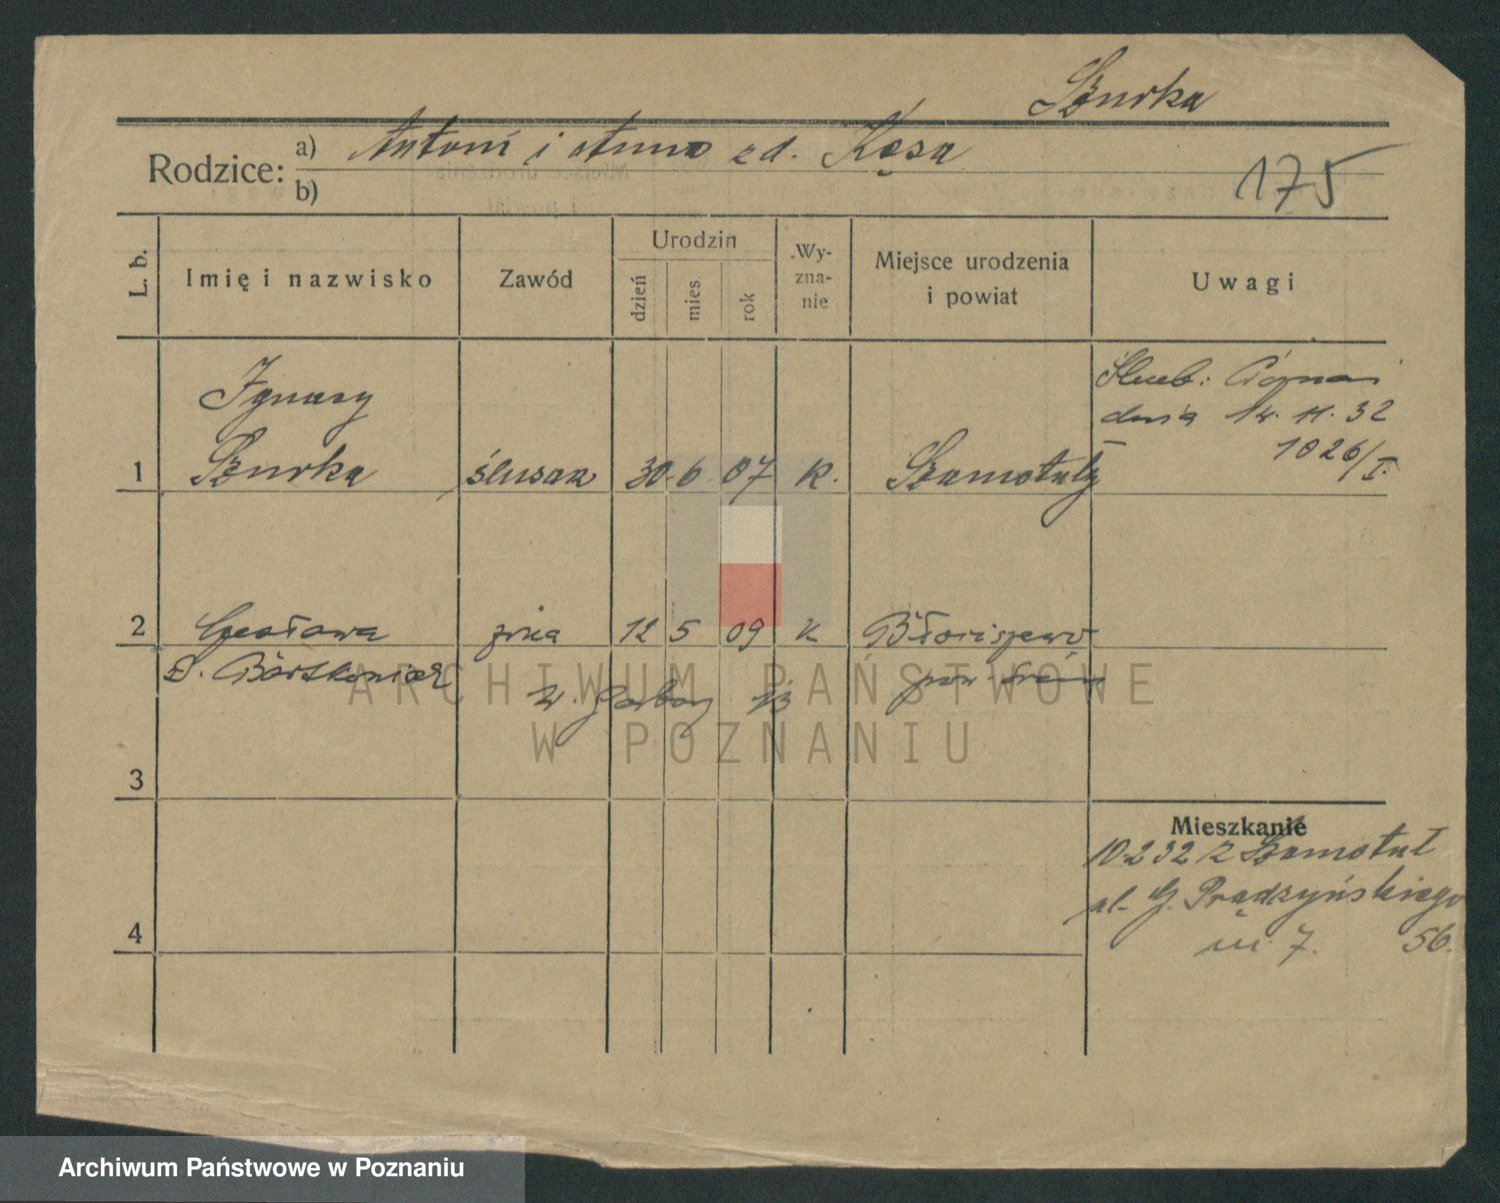 Szurka
Rodzice: a) Antoni i Anna zd. Kęsa
b)
175
L. b.
Imię i nazwisko
Zawód
Urodzin
dzień
mies
rok
Wy-
zna-
nie
Miejsce urodzenia
i powiat
Uwagi
1 Ignacy
Szurka ślusarz 30. 6. 07 k. Szamotuły
Ślub: Poznań
dnia 12. 11. 32
1026/I.
2 Czesława żona 12 5 09 k
D. Bartkowiak
pow. Śrem
W. Garbary 13
3
4
Mieszkanie
10 2 32 z Szamotuł
ul. G. Prądzyńskiego
56.
m 7.
ARCHIWUM PAŃSTWOWE
W POZNANIU
Archiwum Państwowe w Poznaniu